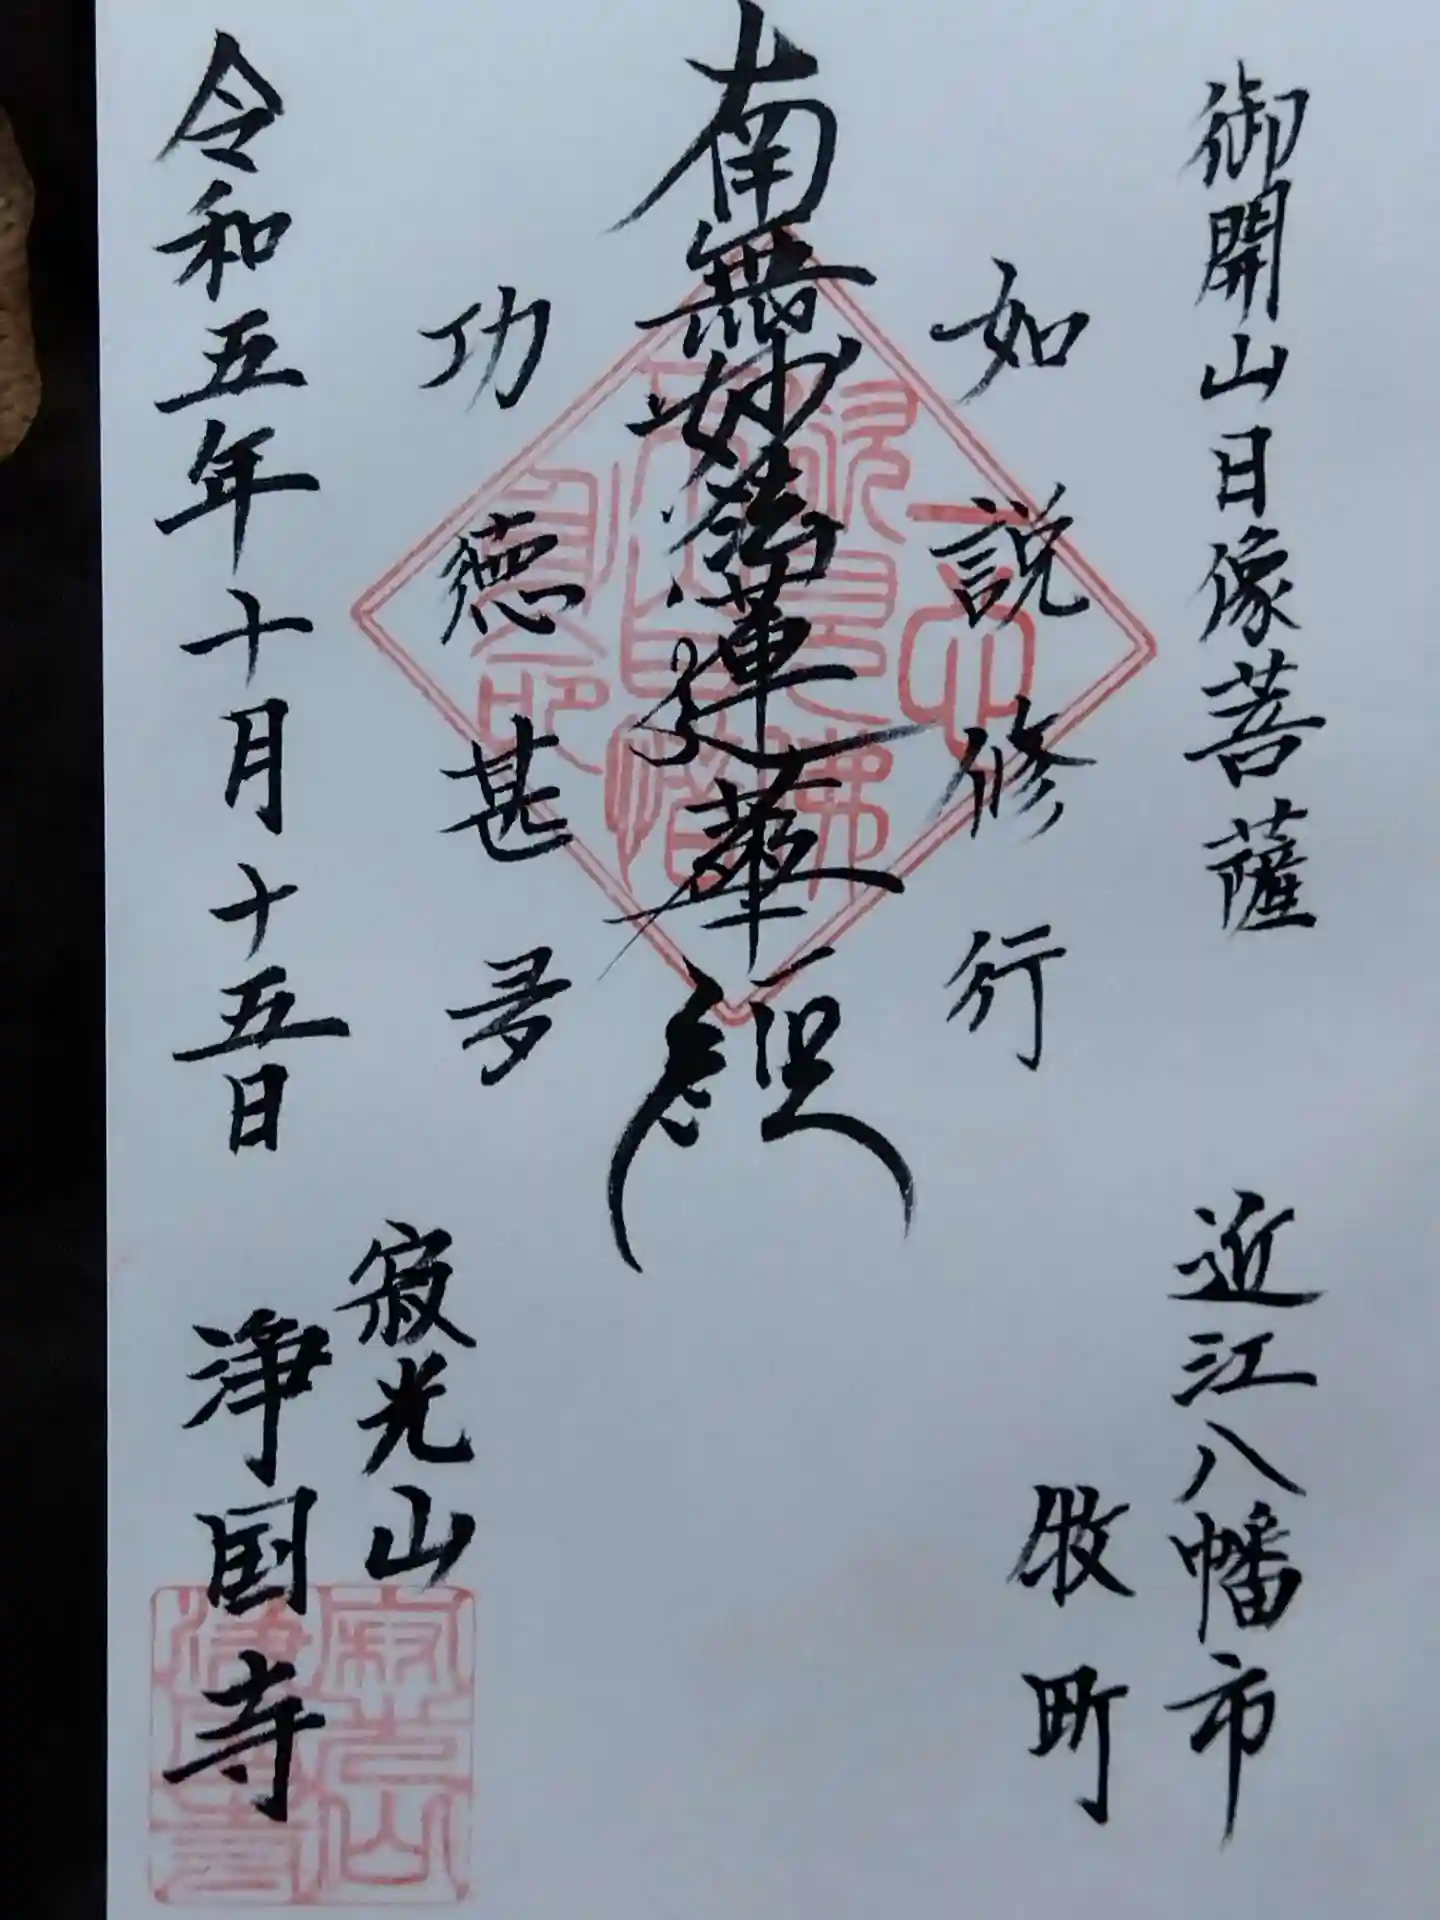 御開山日像菩薩
近江八幡市
牧町
如説修行
南無妙法蓮華経
功徳甚多
寂光山
令和五年十月十五日
浄国寺